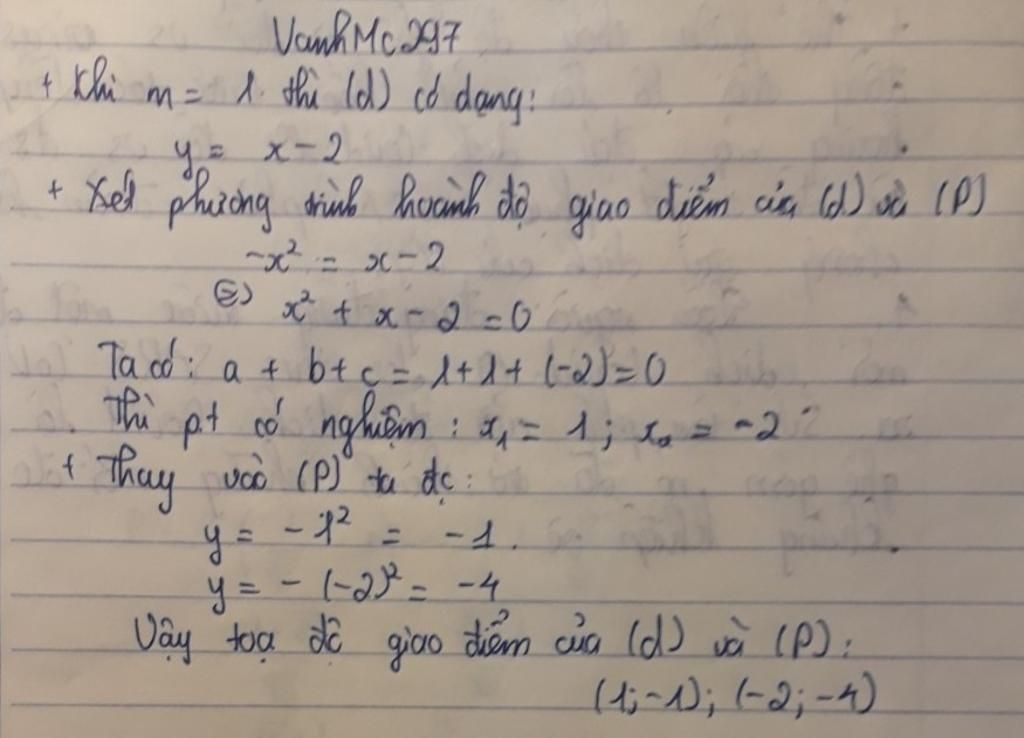 VanhMc297
+ Khi m = 1 thì (d) có dạng:
y = x - 2
+ Xét phương trình hoành độ giao điểm của (d) và (P)
-x² = x - 2
⇔ x² + x - 2 = 0
Ta có: a + b + c = 1 + 1 + (-2) = 0
Thì p.t có nghiệm: x₁ = 1; x₂ = -2
+ Thay vào (P) ta đc:
y = -1² = -1.
y = -(-2)² = -4
Vậy toạ độ giao điểm của (d) và (P):
(1;-1); (-2;-4)